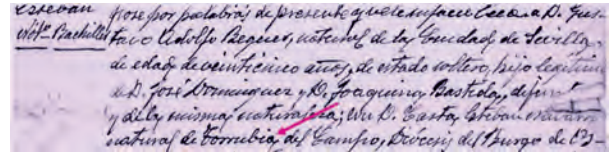 Esteban pose por palabras de presente que
a D. Gus-
Bachiller tavo Adolfo Bequer, natural de la Ciudad de Sevilla,
de edad de veinticinco años, de estado soltero, hijo legitimo
de D. José Dominguez y Dª Joaquina Bastida, difun
y de la misma naturaleza; con Dª Casta Esteban Navarro
natural de Torrubia del Campo, Diócesis del Burgo de Os-